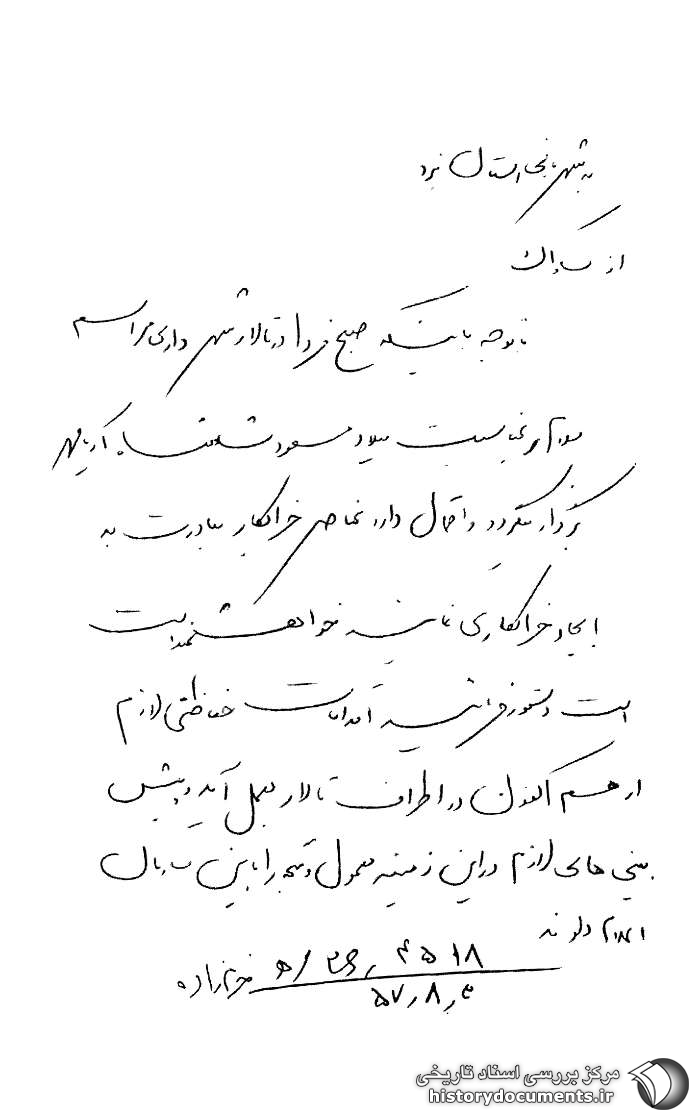 به شهربانی استان یزد
از ساواک
با توجه باینکه صبح فردا در تالار شهرداری مراسم
سلام بمناسبت میلاد مسعود شاهنشاه آریامهر
برگزار میگردد و احتمال دارد عناصر خرابکار مبادرت به
ایجاد خرابکاری نمایند خواهشمند است
است دستور فرمائید اقدامات حفاظتی لازم
از هم اکنون در اطراف تالار بعمل آید و پیش
بینی های لازم در این زمینه معمول و نتیجه را باین سازمان
اعلام دارند
۴۵۱۸
۵۷٫۸٫۳
مرکز بررسی اسناد تاریخی
historydocuments.ir